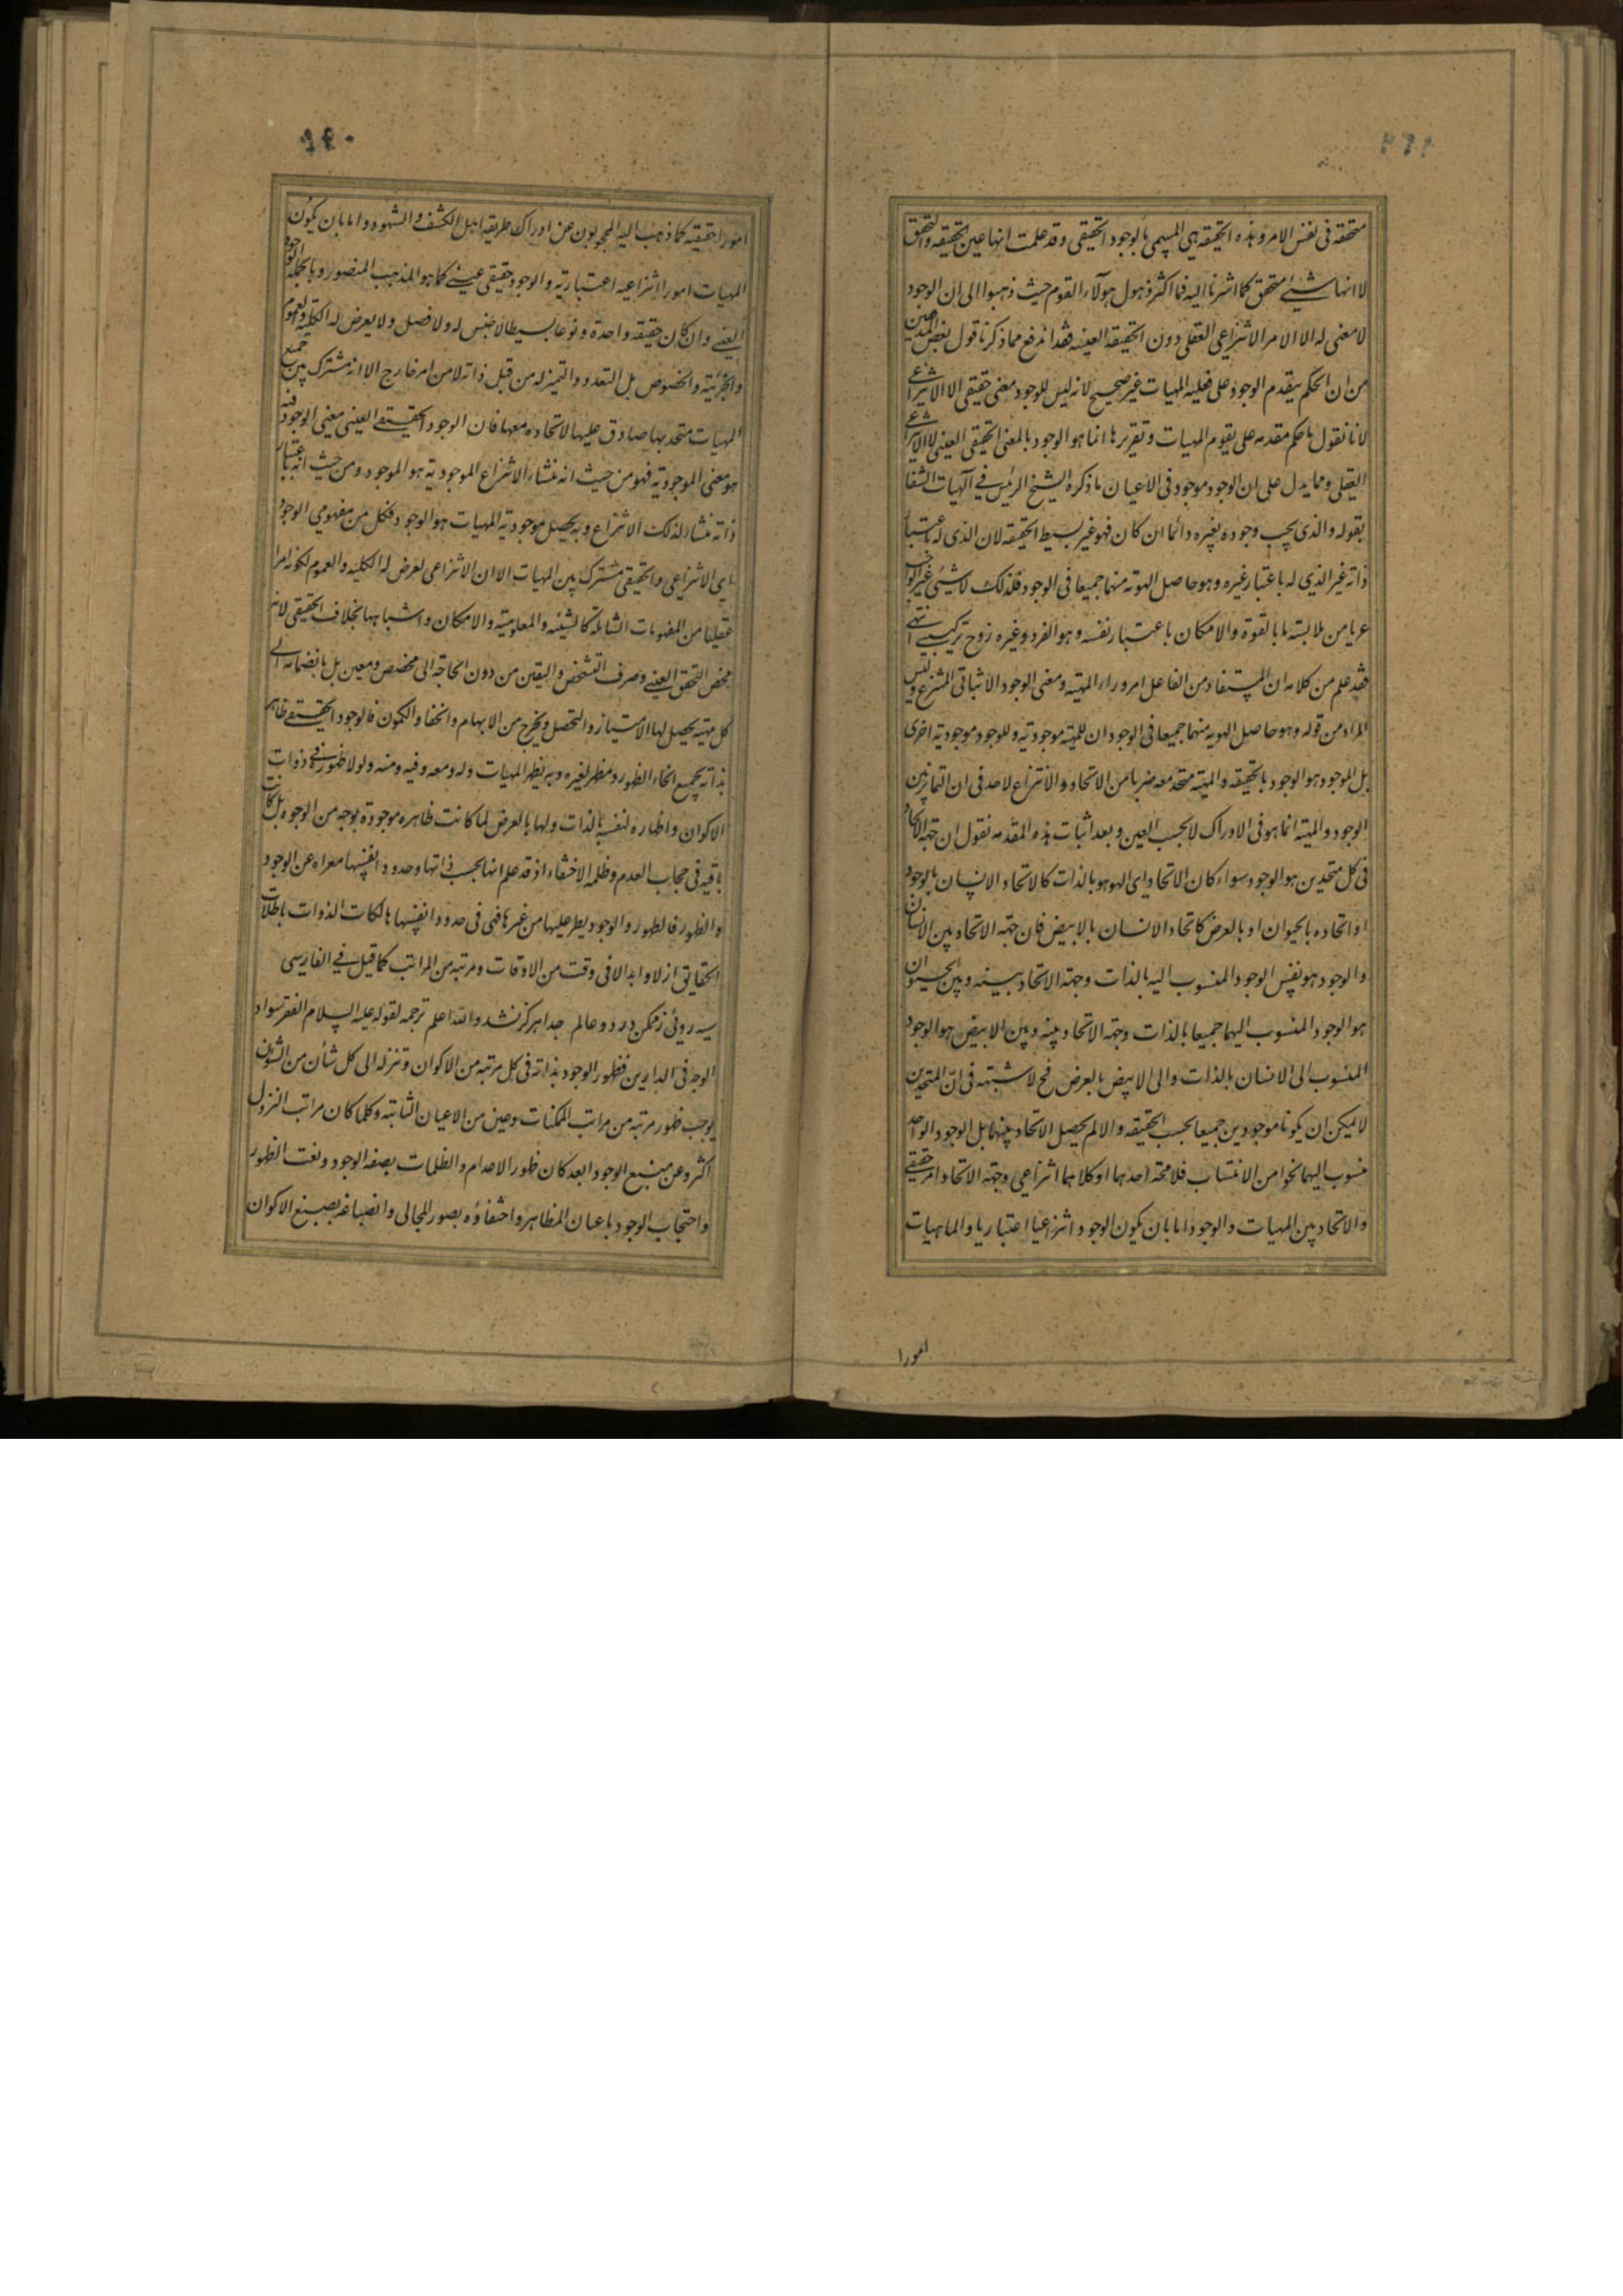 متحققة فی نفس الامر و هذه الحقیقه هی المسمی بالوجود الحقیقی و قد علمت انها عین الحقیقه والتحقق
لا انها شیئ متحقق کما اشرنا الیه فما اکثر ذهول هولآء القوم حیث ذهبوا الی ان الوجود
لا معنی له الا الامر الانتزاعی العقلی دون الحقیقة العینیه فقد اندفع مما ذکرنا قول بعض المدققین
من ان الحکم بتقدم الوجود علی فعلیة المهیات غیر صحیح لانه لیس للوجود معنی حقیقی الا الانتزاعی
لانا نقول ما حکم مقدمه علی تقوم المهیات و تقررها انما هو الوجود بالمعنی الحقیقی العینی لا الانتزاعی
العقلی و مما یدل علی ان الوجود موجود فی الاعیان ما ذکره الشیخ الرئیس فی آلهیات الشفا
بقوله و الذی یجب وجوده بغیره دائما ان کان فهو غیر بسیط الحقیقه لان الذی له باعتبار
ذاته غیر الذی له باعتبار غیره و هو حاصل الهویه منهما جمیعا فی الوجود فلذلک لا شیئ غیر الواجب
عریا من ملابسته ما بالقوة و الامکان باعتبار نفسه و هو الفرد و غیره زوج ترکیبی انتهی
فقد علم من کلامه ان المستفاد من الفاعل امر وراء المهیته و معنی الوجود الاثباتی المنتزع و لیس
المراد من قوله و هو حاصل الهویه منهما جمیعا فی الوجود ان للمهیته موجودیته و للوجود موجودیته اخری
بل الموجود هو الوجود بالحقیقه و المهیته متحد معه ضربا من الاتحاد و لا نزاع لاحد فی ان التمایز بین
الوجود و المهیته انما هو فی الادراک لا بحسب العین و بعد اثبات هذه المقدمه نقول ان جهة الاتحاد
فی کل متحدین هو الوجود سواء کان الاتحاد ای الهو هو بالذات کالاتحاد الانسان بالوجود
او اتحاده بالحیوان او بالعرض کاتحاد الانسان بالابیض فان جهة الاتحاد بین الانسان
و الوجود هو نفس الوجود المنسوب الیه بالذات و جهة الاتحاد بینه و بین الحیوان
هو الوجود المنسوب الیهما جمیعا بالذات و جهة الاتحاد بینه و بین الابیض هو الوجود
المنسوب الی الانسان بالذات و الی الابیض بالعرض فح لا شبهة فی ان المتحدین
لا یمکن ان یکونا موجودین جمیعا بحسب الحقیقه و الا لم یحصل الاتحاد بینهما بل الوجود الواحد
منسوب الیهما نحوا من الانتساب فلا محة احدهما او کلاهما انتزاعی و جهة الاتحاد امر حقیقی
و الاتحاد بین المهیات و الوجود اما بان یکون الوجود انتزاعیا اعتباریا و الماهیات
امورا
امورا حقیقیه کما ذهب الیه المحجوبون عن ادراک طریقه اهل الکشف و الشهود و اما بان یکون
المهیات امورا انتزاعیه اعتباریته و الوجود حقیقی عینی کما هو المذهب المنصور و بالجمله الوجود
العینی و ان کان حقیقه واحدة و نوعا بسیطا لا جنس له و لا فصل و لا یعرض له الکلیته و العموم
و الجزئیته و الخصوص بل التعدد و التمیز له من قبل ذاته لا من امر خارج الا انه مشترک بین جمیع
المهیات متحد بها صادق علیها لاتحاده معها فان الوجود الحقیقی العینی معنی الوجود فیه
هو معنی الموجودیته فهو من حیث انه منشاء الانتزاع الموجودیته هو الموجود و من حیث انه باعتبار
ذاته منشاء لذلک الانتزاع و به یحصل موجودیة المهیات هو الوجود فکل من مفهومی الوجود
ای الانتزاعی و الحقیقی مشترک بین المهیات الا ان الانتزاعی یعرض له الکلیه و العموم لکونه امرا
عقلیا من المفهومات الشاملة کالشیئیه و المعلومیته و الامکان و اشباهها بخلاف الحقیقی لانه
محض التحقق العینی و صرف التشخص و التعین من دون الحاجة الی مخصص و معین بل بانضمامه الی
کل مهیته یحصل لها الامتیاز و التحصل و یخرج من الابهام و الخفا و الکمون فالوجود الحقیقی ظاهر
بذاته بجمیع انحاء الظهور و مظهر لغیره و به یظهر المهیات و له و معه و فیه و منه و لولا ظهوره فی ذوات
الاکوان و اظهاره لنفسه بالذات و لها بالعرض لما کانت ظاهره موجودة بوجه من الوجوه بل کانت
باقیه فی حجاب العدم و ظلمه الاختفاء اذ قد علم انها بحسب ذاتها و حدود انفسها معراه عن الوجود
و الظهور فالظهور و الوجود یطرء علیها من غیرها فهی فی حدود انفسها هالکات الذوات باطلات
الحقایق ازلا و ابدا لا فی وقت من الاوقات و مرتبه من المراتب کما قیل فی الفارسی
سیه روئی ز ممکن در دو عالم جدا هرکز نشد و الله اعلم ترجمه لقوله علیه السلام الفقر سواد
الوجه فی الدارین فظهور الوجود بذاته فی کل مرتبه من الاکوان و تنزله الی کل شأن من الشؤون
یوجب ظهور مرتبه من مراتب الممکنات و عین من الاعیان الثابته و کلما کان مراتب النزول
اکثر و عن منبع الوجود ابعد کان ظهور الاعدام و الظلمات بصفه الوجود و نعت الظهور
و احتجاب الوجود باعیان المظاهر و اختفاؤه بصور المجالی و انصباغه بصبغ الاکوان